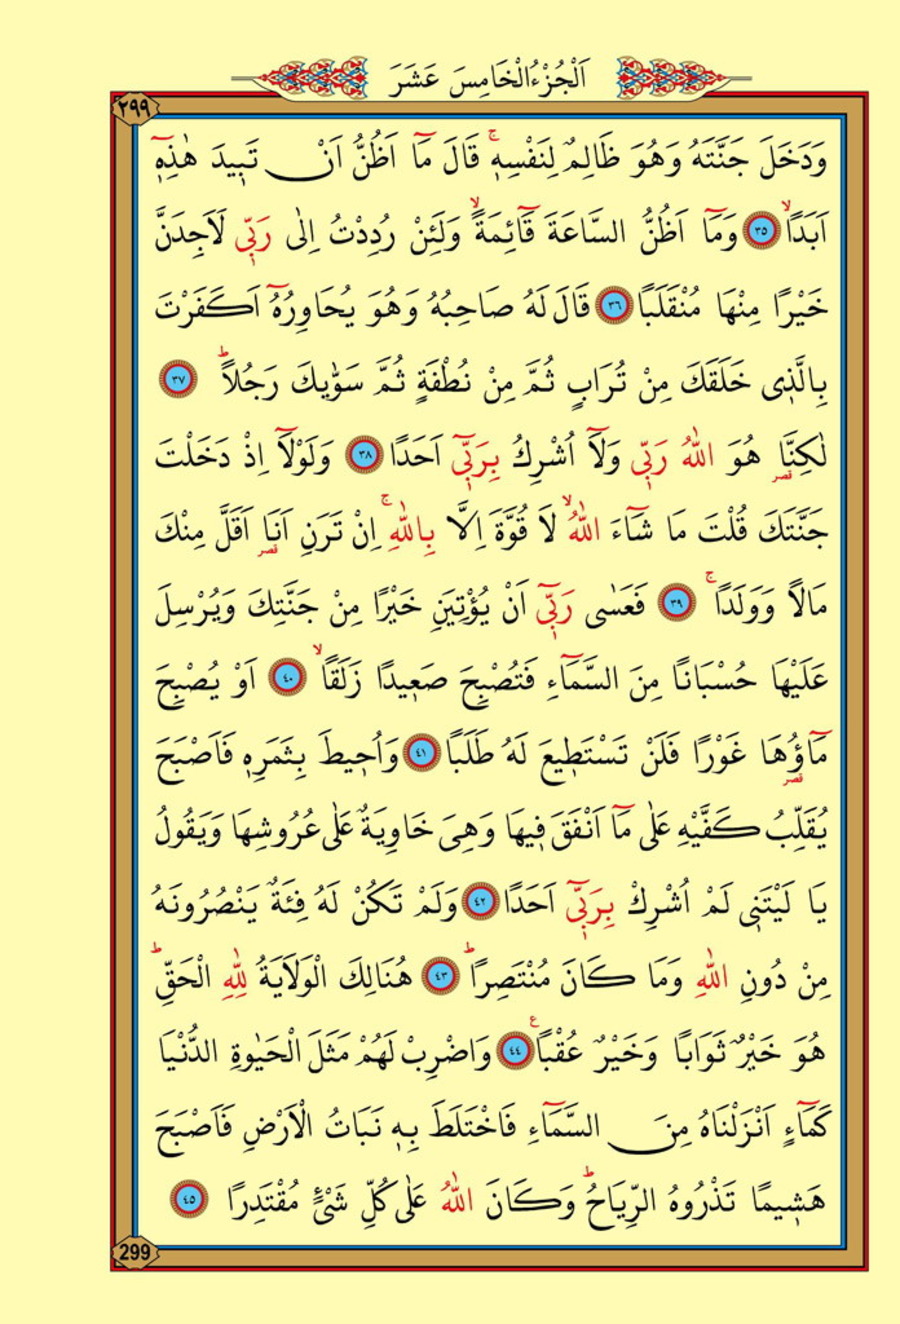 اَلْجُزْءُالْخَامِسَ عَشَرَ
٢٩٩
وَدَخَلَ جَنَّتَهُ وَهُوَ ظَالِمٌ لِنَفْسِه۪ۚ قَالَ مَٓا اَظُنُّ اَنْ تَب۪يدَ هٰذِه۪ٓ
اَبَدًاۙ ﴿٣٥﴾ وَمَٓا اَظُنُّ السَّاعَةَ قَٓائِمَةًۙ وَلَئِنْ رُدِدْتُ اِلٰى رَبّ۪ي لَاَجِدَنَّ
خَيْرًا مِنْهَا مُنْقَلَبًا ﴿٣٦﴾ قَالَ لَهُ صَاحِبُهُ وَهُوَ يُحَاوِرُهُٓ اَكَفَرْتَ
بِالَّذ۪ى خَلَقَكَ مِنْ تُرَابٍ ثُمَّ مِنْ نُطْفَةٍ ثُمَّ سَوّٰيكَ رَجُلًاۜ ﴿٣٧﴾
لٰكِنَّا۬ هُوَ اللّٰهُ رَبّ۪ي وَلَٓا اُشْرِكُ بِرَبّ۪ٓي اَحَدًا ﴿٣٨﴾ وَلَوْلَٓا اِذْ دَخَلْتَ
جَنَّتَكَ قُلْتَ مَا شَٓاءَ اللّٰهُۙ لَا قُوَّةَ اِلَّا بِاللّٰهِۚ اِنْ تَرَنِ اَنَا۬ اَقَلَّ مِنْكَ
مَالًا وَوَلَدًاۚ ﴿٣٩﴾ فَعَسٰى رَبّ۪ٓي اَنْ يُؤْتِيَنِ خَيْرًا مِنْ جَنَّتِكَ وَيُرْسِلَ
عَلَيْهَا حُسْبَانًا مِنَ السَّمَٓاءِ فَتُصْبِحَ صَع۪يدًا زَلَقًاۙ ﴿٤٠﴾ اَوْ يُصْبِحَ
مَٓاؤُ۬هَا غَوْرًا فَلَنْ تَسْتَط۪يعَ لَهُ طَلَبًا ﴿٤١﴾ وَاُح۪يطَ بِثَمَرِه۪ فَاَصْبَحَ
يُقَلِّبُ كَفَّيْهِ عَلٰى مَٓا اَنْفَقَ ف۪يهَا وَهِىَ خَاوِيَةٌ عَلٰى عُرُوشِهَا وَيَقُولُ
يَا لَيْتَن۪ى لَمْ اُشْرِكْ بِرَبّ۪ٓي اَحَدًا ﴿٤٢﴾ وَلَمْ تَكُنْ لَهُ فِئَةٌ يَنْصُرُونَهُ
مِنْ دُونِ اللّٰهِ وَمَا كَانَ مُنْتَصِرًاۜ ﴿٤٣﴾ هُنَالِكَ الْوَلَايَةُ لِلّٰهِ الْحَقِّۜ
هُوَ خَيْرٌ ثَوَابًا وَخَيْرٌ عُقْبًا۟ ﴿٤٤﴾ وَاضْرِبْ لَهُمْ مَثَلَ الْحَيٰوةِ الدُّنْيَا
كَمَٓاءٍ اَنْزَلْنَاهُ مِنَ السَّمَٓاءِ فَاخْتَلَطَ بِه۪ نَبَاتُ الْاَرْضِ فَاَصْبَحَ
هَش۪يمًا تَذْرُوهُ الرِّيَاحُۜ وَكَانَ اللّٰهُ عَلٰى كُلِّ شَيْءٍ مُقْتَدِرًا ﴿٤٥﴾
299